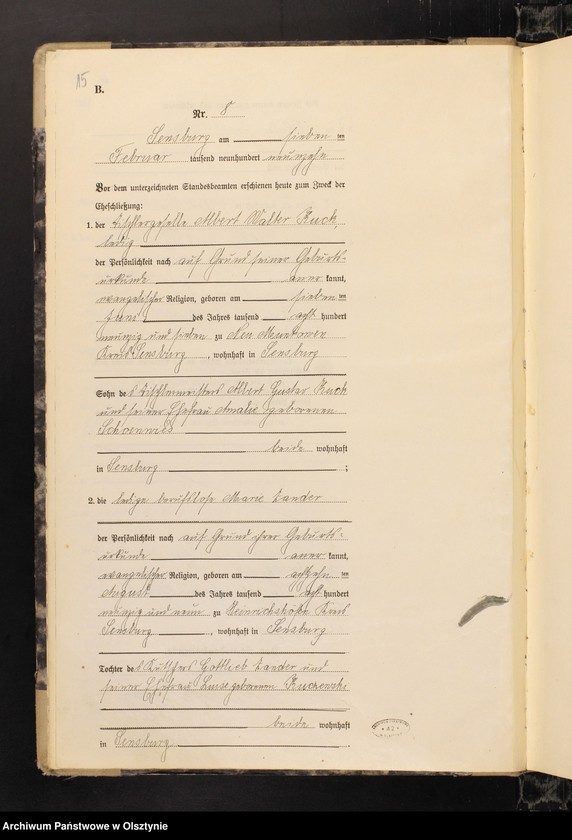 15
B.
Nr. 8
Sensburg am sieben ten
Februar tausend neunhundert neunzehn
Vor dem unterzeichneten Standesbeamten erschienen heute zum Zweck der
Eheschließung:
1. der Tischlergeselle Albert Walter Kuck,
ledig
der Persönlichkeit nach auf Grund seiner Geburts-
urkunde aner kannt,
evangelischer Religion, geboren am sieben ten
Juni des Jahres tausend acht hundert
neunzig und sieben zu Neu Muntowen
Kreis Sensburg, wohnhaft in Sensburg
Sohn des Tischlermeisters Albert Gustav Kuck
und seiner Ehefrau Amalie geborenen
Schoenwies
beide wohnhaft
in Sensburg ;
2. die ledige berufslose Marie Zander
der Persönlichkeit nach auf Grund ihrer Geburts-
urkunde aner kannt,
evangelischer Religion, geboren am achtzehn ten
August des Jahres tausend acht hundert
neunzig und neun zu Heinrichshöfen Kreis
Sensburg, wohnhaft in Sensburg
Tochter des Kutschers Gottlieb Zander und
seiner Ehefrau Luise geborenen
beide wohnhaft
in Sensburg.
Archiwum Państwowe w Olsztynie